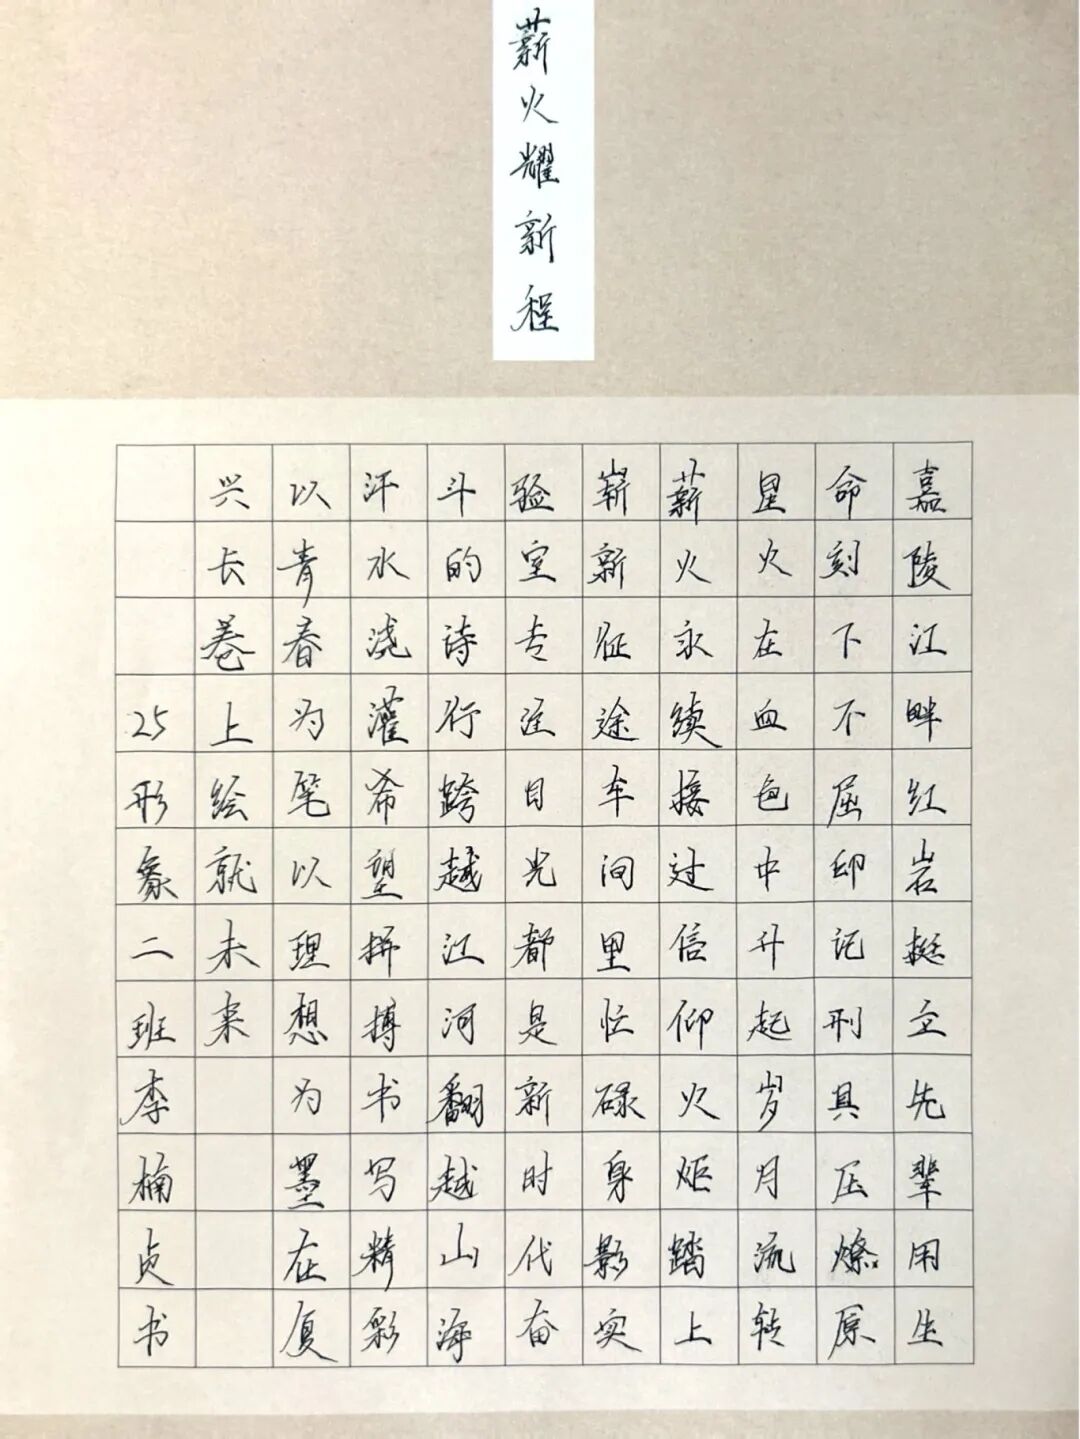 薪火耀新程
嘉陵江畔红岩挺立先辈用生
命刻下不屈印记刑具压燎原
星火在血色中升起岁月流转
薪火永续接过信仰火炬踏上
崭新征途车间里忙碌身影实
验室专注目光都是新时代奋
斗的诗行跨越江河翻越山海
汗水浇灌希望拼搏书写精彩
以青春为笔以理想为墨在厦
兴长卷上绘就未来
25形象二班李楠贞书